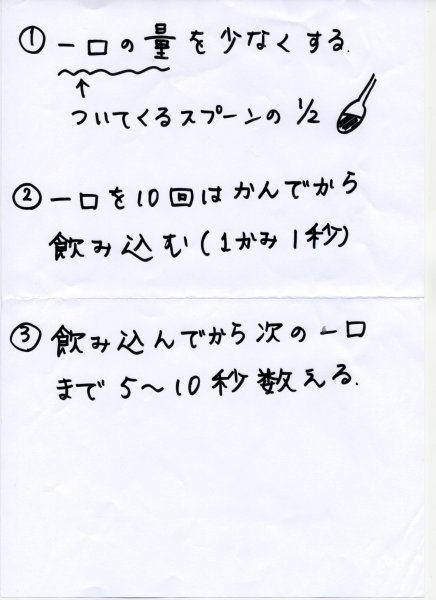 ① 一口の量を少なくする.
↑
ついてくるスプーンの 1/2
② 一口を10回はかんでから
飲み込む(1かみ1秒)
③ 飲み込んでから次の一口
まで5~10秒数える.